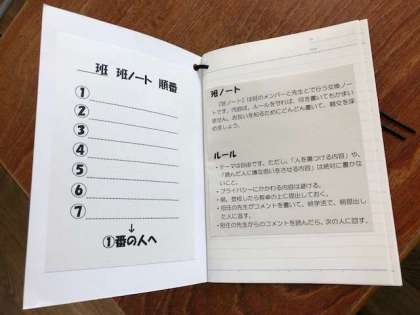 班 班ノート 順番
①
②
③
④
⑤
⑥
⑦
↓
①番の人へ
班ノート
『班ノート』は班のメンバーと先生とで行う交換ノー
トです。内容は、ルールを守れば、何を書いてもかまい
ません。お互いを知るためにどんどん書いて、親交を深
めましょう。
ルール
・テーマは自由です。ただし、「人を傷つける内容」や、
「読んだ人に嫌な思いをさせる内容」は絶対に書かな
いこと。
・プライバシーにかかわる内容は避ける。
・朝、登校したら教卓の上に提出しておく。
・担任の先生がコメントを書いて、終学活で、朝提出し
た人に返す。
・担任の先生からのコメントを読んだら、次の人に回す。